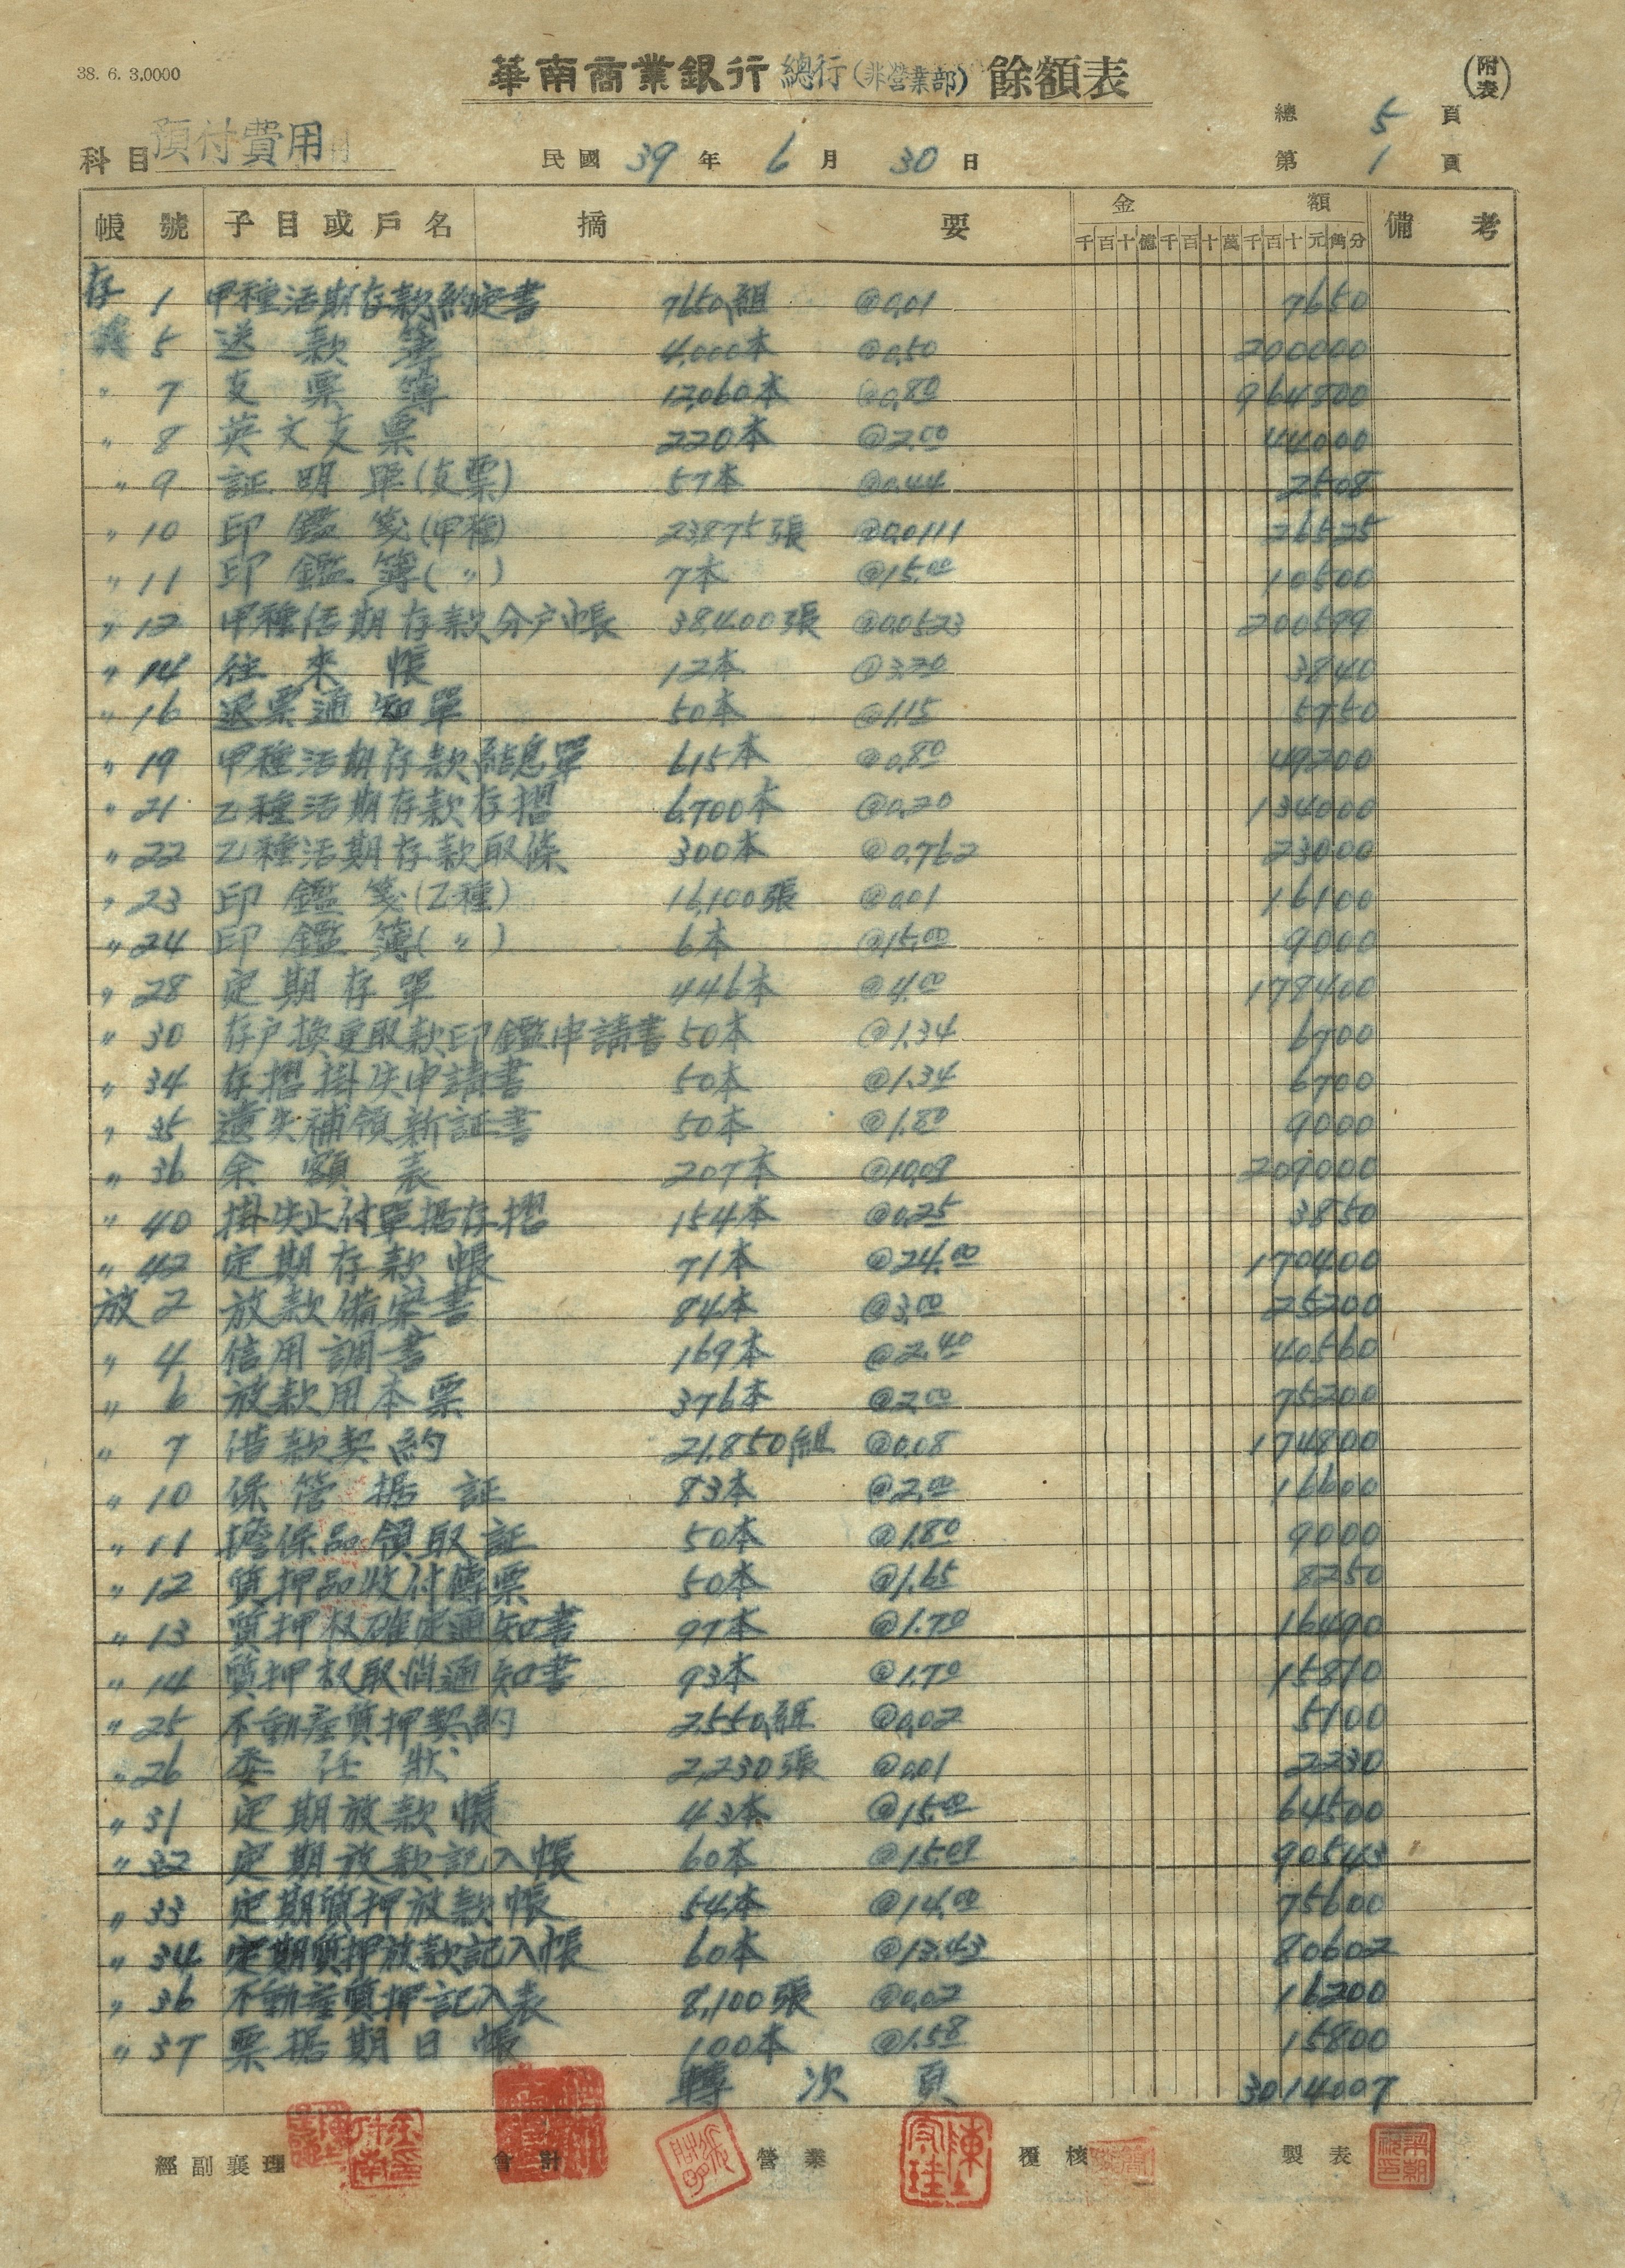 38. 6. 3.0000
華南商業銀行 總行(非營業部) 餘額表
(附表)
總 5 頁
科目 預付費用 民國 39 年 6 月 30 日 第 1 頁
帳號 子目或戶名 摘要 金額 備考
千百十億千百十萬千百十元角分
存 1 甲種活期存款約定書 7650組 @0.01 7650
5 送款簿 4,000本 @0.50 200000
〃 7 支票簿 12,060本 @0.80 964800
〃 8 英文支票 220本 @2.00 44000
〃 9 証明單(支票) 57本 @0.44 2508
〃 10 印鑑箋(甲種) 23,875張 @0.0111 26525
〃 11 印鑑簿(〃) 7本 @15.00 10500
〃 12 甲種活期存款分户帳 38,400張 @0.0523 200599
〃 14 往來帳 12本 @3.20 3840
〃 16 退票通知單 50本 @1.15 5750
〃 19 甲種活期存款結息單 615本 @0.80 49200
〃 21 乙種活期存款存摺 6,700本 @0.20 134000
〃 22 乙種活期存款取條 300本 @0.762 23000
〃 23 印鑑箋(乙種) 16,100張 @0.01 16100
〃 24 印鑑簿(〃) 6本 @15.00 9000
〃 28 定期存單 446本 @4.00 178400
〃 30 存户換更取款印鑑申請書 50本 @1.34 6700
〃 34 存摺掛失申請書 50本 @1.34 6700
〃 35 遺失補領新証書 50本 @1.80 9000
〃 36 余額表 207本 @10.09 209000
〃 40 掛失止付單据存摺 154本 @0.25 3850
〃 42 定期存款帳 71本 @24.00 170400
放 2 放款備案書 84本 @3.00 25200
〃 4 信用調書 169本 @2.40 40560
〃 6 放款用本票 376本 @2.00 75200
〃 7 借款契約 21,850組 @0.08 174800
〃 10 保管据証 83本 @2.00 16600
〃 11 擔保品領取証 50本 @1.80 9000
〃 12 質押品收付傳票 50本 @1.65 8250
〃 13 質押权確定通知書 97本 @1.70 16490
〃 14 質押权取消通知書 93本 @1.70 15810
〃 25 不動産質押契約 2,550組 @0.02 5100
〃 26 委任狀 2,230張 @0.01 2230
〃 31 定期放款帳 43本 @15.00 64500
〃 32 定期放款記入帳 60本 @15.09 90543
〃 33 定期質押放款帳 54本 @14.00 75600
〃 34 定期質押放款記入帳 60本 @13.43 80602
〃 36 不動産質押記入表 8,100張 @0.02 16200
〃 37 票据期日帳 100本 @1.58 15800
轉次頁 3014007
經副襄理 會計 營業 覆核 製表